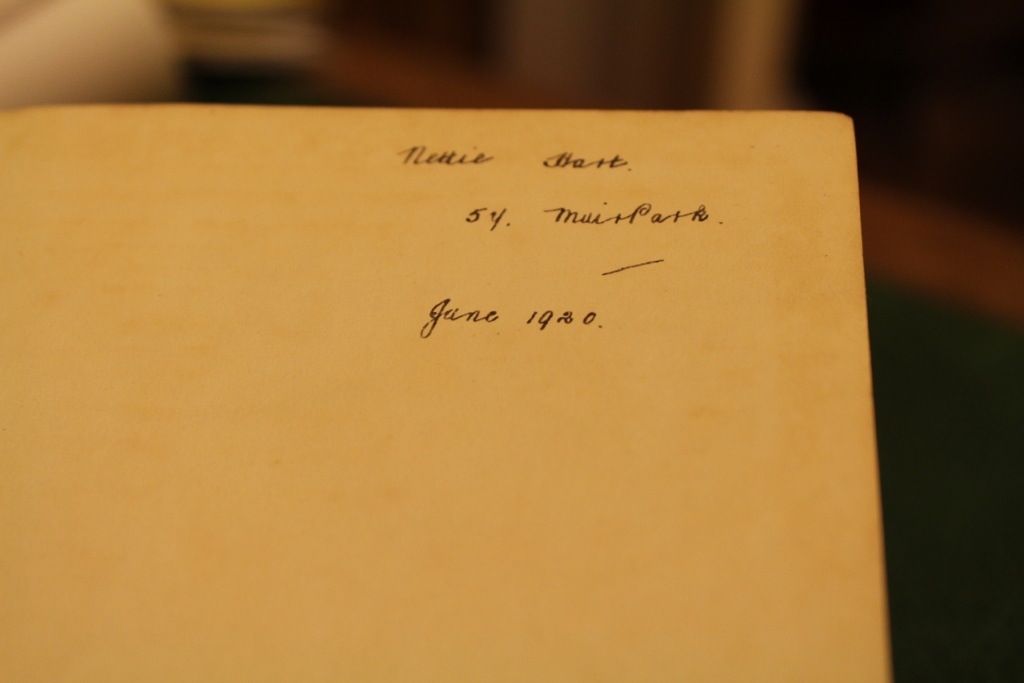 Nettie Hart.
54. Muirpark.
June 1920.